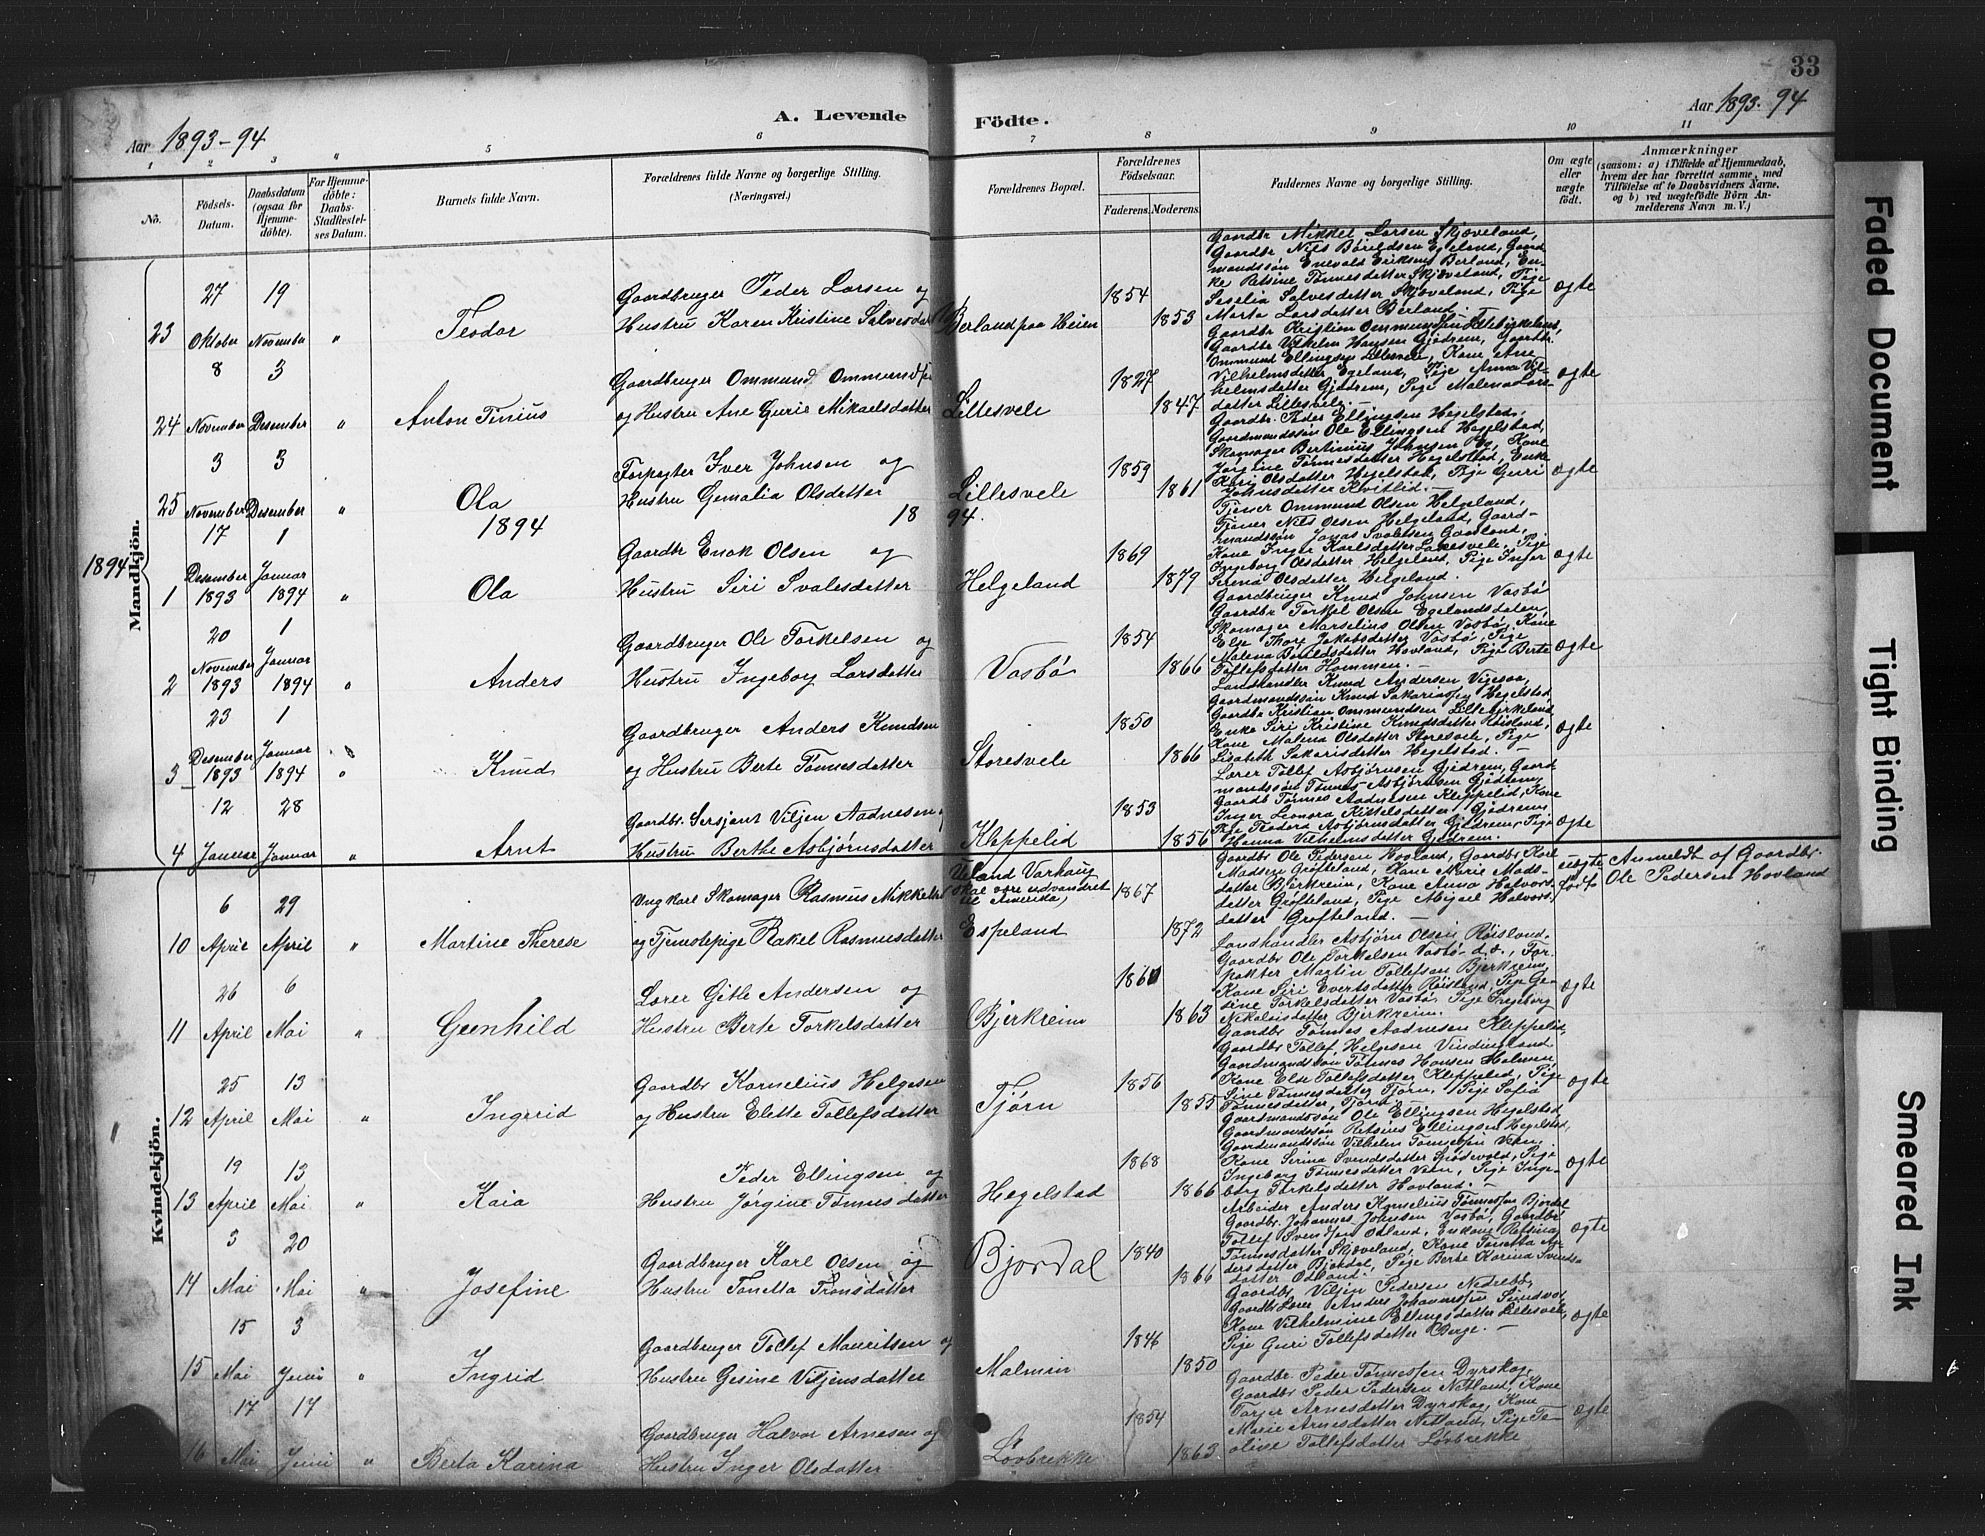 33
A. Levende Födte.
Aar 1893-94
Aar 1893-94
1 2 3 " 5 6 7 8 9 10 11
No.
Födsels-Datum.
Daabsdatum (ogsaa for Hjemme-döbte).
For Hjemme-döbte: Daabs-Stadfæstel-ses Datum.
Barnets fulde Navn.
Forældrenes fulde Navne og borgerlige Stilling.
(Næringsvei.)
Forældrenes Bopæl.
Forældrenes Födselsaar.
Faderens. Moderens.
Faddernes Navne og borgerlige Stilling.
Om ægte eller uægte födt.
Anmærkninger
(saasom: a) i Tilfælde af Hjemmedaab,
hvem der har forrettet samme, med
Tilföielse af to Daabsvidners Navne,
og b) ved uægtefödte Börn An-
melderens Navn m. V.)
Mandkjön.
23 27 Oktober 19 November " Teodor
Gaardbruger Peder Larsen og
Hustru Karen Kristine Salvesdat
Berland paa Heien 1854 1853
Gaardbr Mikkel Larsen Skjæveland,
Gaardbr Nils Bårildsen Egeland, Gaard
mandssön Enevald Eriksens Berland, En-
ke Retsine Tönnesdatter Skjæveland, Pige
Seselia Salvesdatter Skjæveland, Pige
Marta Larsdatter Berland. -
ægte
24 8 November 3 Desember " Anton Tinius
Gaardbruger Ommund Ommundsen
og Hustru Ane Gurie Mikaelsdatter
Lillesvele 1827 1847
Gaardbr Kristian Ommundsen Lillebirkeland,
Gaardbr Vilhelm Hansen Gjedrem, Gaardbr.
Ommund Ellingsen Lillesvele, Kone Ane
Vilhelmsdatter Egeland, Pige Anna Vil-
helmsdatter Gjedrem, Pige Malena Lars-
datter Lillesvele. -
ægte
25 3 November 3 Desember " Ola
Forpagter Iver Johnsen og
Hustru Gemalia Olsdatter
Lillesvele 1859 1861
Gaardbr. Peder Ellingsen Hegelstad,
Gaardmandssön Ole Ellingsen Hegelstad,
Skomager Bertinius Johnsen Eg, Kone
Jörgine Tönnesdatter Hegelstad, Enke
Kari Olsdatter Hegelstad, Pige Guri
Johnsdatter Kvitlid. -
ægte
1894 1894
1894
1 17 Desember 1893 1 Januar 1894 " Ola
Gaardbr Enok Olsen og
Hustru Siri Svalesdatter
Helgeland 1869 1879
Tjener Ommund Olsen Helgeland,
Tjener Nils Olsen Helgeland, Gaard-
mandssön Jonas Svalesen Gaarland,
Kone Inger Karlsdatter Lillesvele, Pige
Ingeborg Olsdatter Helgeland, Pige Inger
Serena Olsdatter Helgeland.
ægte
2 20 November 1893 1 Januar 1894 " Anders
Gaardbruger Ole Torkelsen og
Hustru Ingeborg Larsdatter
Vasbö 1854 1866
Gaardbruger Knud Johnsen Vasbö
Gaardbr Torkel Olsen Egelandsdalen,
Skomager Marselius Olsen Vasbö, Kone
Else Thory Jakobsdatter Vasbö, Pige
Malena Bårildsdatter Hovland, Pige Berte
Tollefsdatter Hommen. -
ægte
3 23 Desember 1893 1 Januar 1894 " Knud
Gaardbruger Anders Knudsen
og Hustru Berte Tönnesdatter
Storesvele 1850 1866
Landhandler Knud Andersen Vigesaa,
Gaardmandssön Knud Sakariassen Hegelstad
Gaardbr Kristian Ommundsen Lillebirkeland
Enke Siri Kristine Knudsdatter Röisland,
Kone Malena Olsdatter Storesvele, Pige
Lisabeth Sakarisdatter Hegelstad. -
ægte
4 12 Januar 28 Januar " Arnt
Gaardbr. Sersjant Viljen Aadnesen og
Hustru Berthe Asbjörnsdatter
Kleppelid 1853 1856
Lærer Tollef Asbjörnsen Gjedrem, Gaard
mandssön Tönnes Asbjörnsen Gjedrem,
Gaardb Tönnes Aadnesen Kleppelid, Kone
Inger Leonora Kittelsdatter Gjedrem
Pige Teodora Asbjörnsdatter Gjedrem, Pige
Hanna Vilhelmsdatter Gjedrem.
ægte
Kvindekjön.
10 6 April 29 April " Martine Therese
Ungkarl Skomager Rasmus Mikkelsen
og Tjenestepige Rakel Rasmusdatter
Ueland Varhaug
skal være udvandret
til Amerika,
Espeland 1867 1872
Gaardbr Ole Pedersen Hovland, Gaardbr Karl
Madsen Gröfteland, Kone Marie Mads-
datter Bjerkreim, Kone Anna Halvors-
datter Gröfteland, Pige Mijael Halvors
datter Gröfteland. -
uægte född
Anmeldt af Gaardbr.
Ole Pedersen Hovland
11 26 April 6 Mai " Geenhild
Lærer Gitle Andersen og
Hustru Berte Torkelsdatter
Bjerkreim 1861 1863
Landhandler Asbjörn Olsen Röisland.
Gaardbr Ole Torkelsen Vasbö d.o., For-
pakter Martin Tollefsen Bjerkreim,
Kone Siri Evertsdatter Röisland, Pige Ge-
sine Torkelsdatter Vasbö, Pige Ingeborg
Nikolaisdatter Bjerkreim.
ægte
12 25 April 13 Mai " Ingerid
Gaardbr Kornelius Helgesen
og Hustru Elette Tollefsdatter
Tjörn 1856 1855
Gaardbr Tönnes Aadnesen Kleppelid,
Gaardbr Tollef Helgesen Vindingland
Gaardmandssön Tönnes Hansen Malmin
Kone Else Tollefsdatter Kleppelid, Pige
Sine Tönnesdatter Tjörn, Pige Sofia
Tönnesdatter, Tjörn. -
ægte
13 19 April 13 Mai " Kaia
Peder Ellingsen og
Hustru Jörgine Tönnesdatter
Hegelstad 1868 1866
Gaardmandssön Ole Ellingsen Hegelstad,
Gaardmandssön Retsius Ellingsen Hegelstad,
Gaardmandssön Vilhelm Tönnessen Veen,
Kone Serina Svendsdatter Spödevold, Pige
Ingeborg Tönnesdatter Veen, Pige Inge-
borg Torkelsdatter Hovland. -
ægte
14 3 Mai 20 Mai " Josefine
Gaardbruger Karl Olsen og
Hustru Tonetta Tronsdatter
Bjordal 1840 1866
Arbeider Anders Kornelius Tönnessen Bjordal
Gaardbr. Johannes Johnsen Vasbö, Gaardbr
Tollef Svendsen Odland, Enkone Retsina
Tönnesdatter Skjæveland, Kone Tonetta An-
dersdatter Bjordal, Pige Berte Karina Svends-
datter Odland.
ægte
15 15 Mai 3 Juni " Ingrid
Gaardbruger Tollef Mauritsen og
Hustru Gesine Viljensdatter
Malmin 1846 1850
Gaardbr Viljen Pedersen Nedrebö,
Gaardbr Lærer Anders Johannessen Sundvor,
Kone Vilhelmine Ellingsdatter Lillesvele,
Pige Guri Tollefsdatter Berge. -
ægte
16 17 Mai 17 Juni " Berta Karina
Gaardbruger Halvor Arnesen og
Hustru Inger Olsdatter
Lövbrekke 1854 1863
Gaardbr Peder Tönnessen Dyrskog,
Gaardbr Peder Pedersen Netland, Kone
Torjer Arnesdatter Dyrskog, Kone
Marie Arnesdatter Netland, Pige Te-
oline Tollefsdatter Lövbrekke
ægte
Faded Document
Tight Binding
Smeared Ink